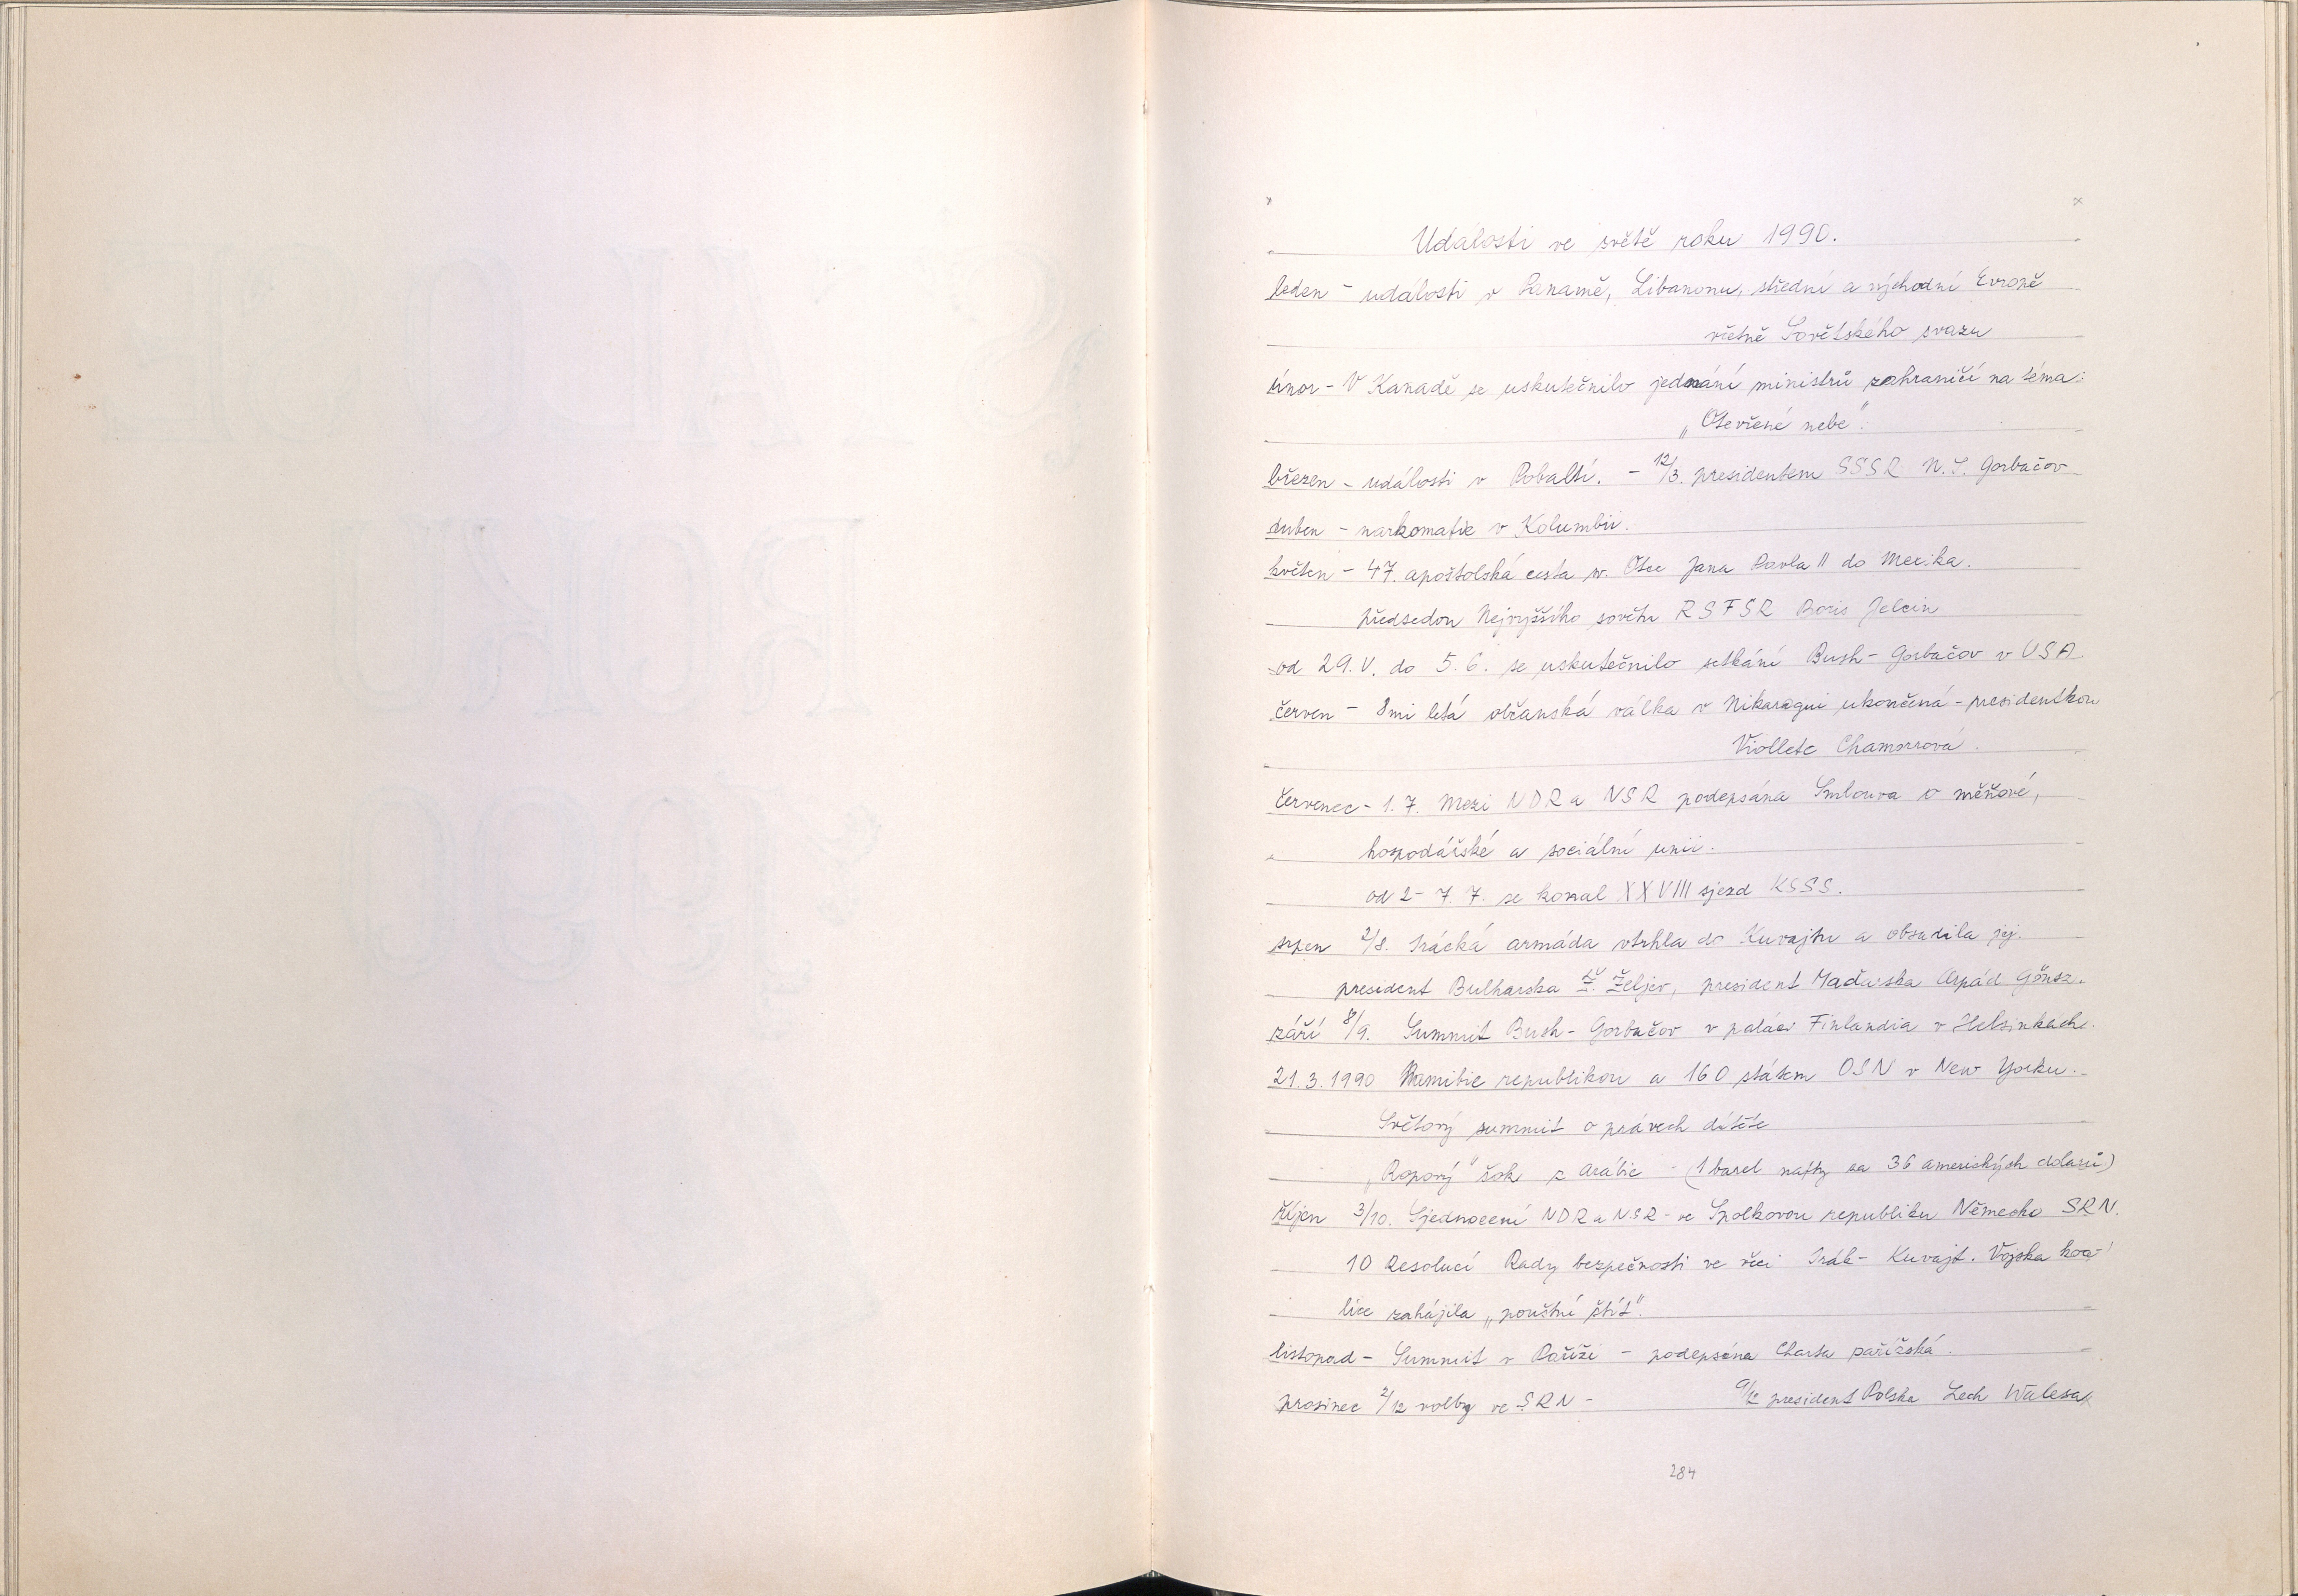 Události ve světě roku 1990.
leden - události v Panamě, Libanonu, střední a východní Evropě
včetně Sovětského svazu
únor - V Kanadě se uskutečnilo jednání ministrů zahraničí na téma:
„Otevřené nebe".
březen - události v Pobaltí. - 12/3. presidentem SSSR M. S. Gorbačov
duben - narkomafie v Kolumbii.
květen - 47. apoštolská cesta sv. Otce Jana Pavla II do Mexika.
předsedou Nejvyššího sovětu RSFSR Boris Jelcin
od 29. V. do 5. 6. se uskutečnilo setkání Bush - Gorbačov v USA
červen - 8mi letá občanská válka v Nikaragui ukončená - presidentkou
Viollete Chamorrová.
červenec - 1. 7. Mezi NDR a NSR podepsána Smlouva o měňové,
hospodářské a sociální unii.
od 2 - 7. 7. se konal XXVIII sjezd KSSS.
srpen 2/8. Irácká armáda vtrhla do Kuvajtu a obsadila jej.
president Bulharska Ž. Željev, president Maďarska Arpád Gönsz.
září 8/9. Summit Bush - Gorbačov v paláci Finlandia v Helsinkách.
21. 3. 1990 Namibie republikou a 160 státem OSN v New Yorku.
Světový summit o právech dítěte
„Ropový" šok z Arábie - (1 barel nafty za 36 amerických dolarů)
říjen 3/10. Sjednocení NDR a NSR - ve Spolkovou republiku Německo SRN.
10 Resolucí Rady bezpečnosti ve věci Irák - Kuvajt. Vojska koa-
lice zahájila „pouštní štít".
listopad - Summit v Paříži - podepsána Charta pařížská.
prosinec 2/12 volby ve SRN - 9/12 president Polska Lech Walesa
284
STALO SE
ROKU
1990